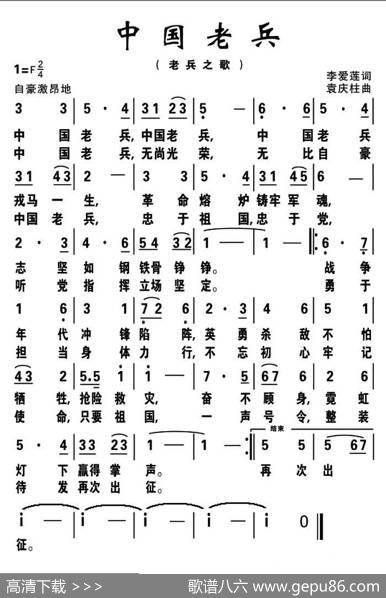 中国老兵
(老兵之歌)
1=F 2/4
李爱莲词
自豪激昂地
袁庆柱曲
3 3 | 5 · 4 | 31 23 | 5 — | 6 · 6 | 5 · 4 |
中国老兵,中国老兵,中国老兵
中国老兵,无尚光荣,无比自豪
31 43 | 2 — | 3 3 | 5 · 4 | 31 45 | 6 — |
戎马一生,革命熔炉铸牢军魂,
中国老兵,忠于祖国,忠于党,
2 · 3 | 4 · 6 | 54 32 | 1 — | 1 — :| 6 · 7 |
志坚如钢铁骨铮铮。战争
听党指挥立场坚定。勇于
1 6 | 3 1 | 7 2 6 | 2 · 3 | 4 6 | 3 1 |
年代冲锋陷阵,英勇杀敌不怕
担当身体力行,不忘初心牢记
43 2 | 5.5 1 | 1 — | 3 · 5 | 67 6 | 2 3 |
牺牲,抢险救灾,奋不顾身,霓虹
使命,只要祖国,一声号令,整装
结束
5 · 4 | 33 23 | 1 — | 1 — :| 5 5 | 5 67 |
灯下赢得掌声。再次出
待发再次出征。
i — | i — | i — | i — | i 0 ‖
征。
高清下载 >>>
歌谱八六 www.gepu86.com